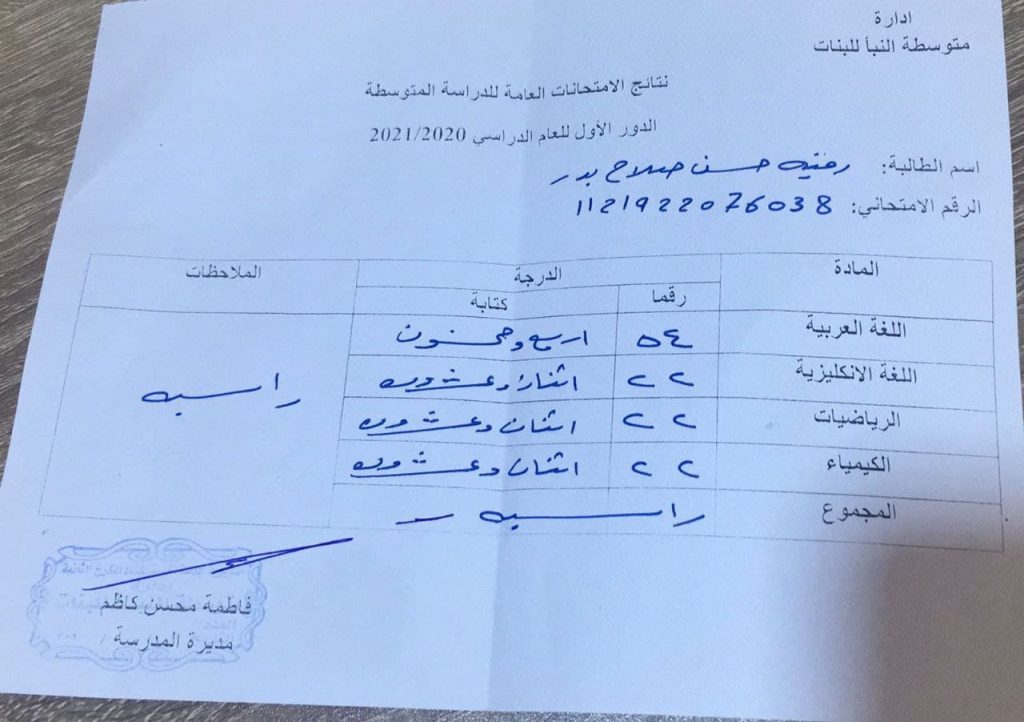 ادارة
متوسطة النبأ للبنات
نتائج الامتحانات العامة للدراسة المتوسطة
الدور الأول للعام الدراسي 2021/2020
اسم الطالبة: حسن صلاح بدر
الرقم الامتحاني: 1121922076038
المادة الدرجة الملاحظات
رقما كتابة
اللغة العربية ٥٤ اربع وخمسون
اللغة الانكليزية ٢٢ اثنان وعشرون
الرياضيات ٢٢ اثنان وعشرون
الكيمياء ٢٢ اثنان وعشرون
راسبه
المجموع راسبه
فاطمة محسن كاظم
مديرة المدرسة